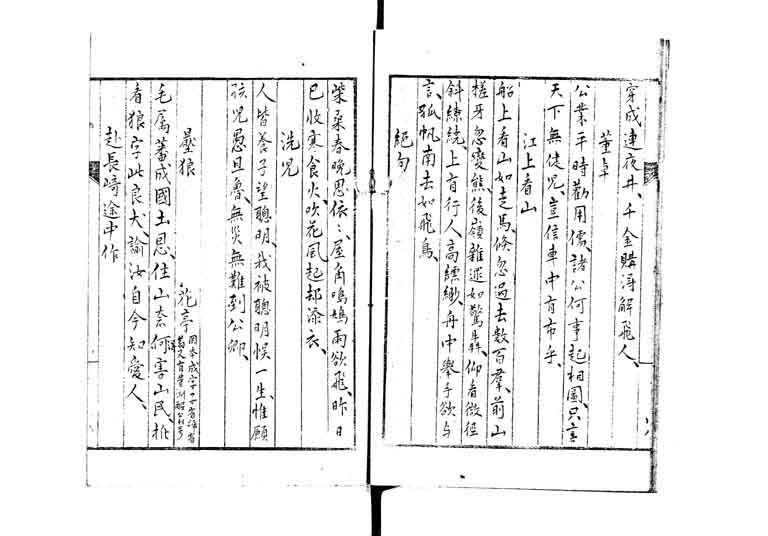 穿成連夜井、千金購得解飛人、
董卓
公業平時勸用儒、諸公何事起相圖、只言
天下無健兒、豈信車中有布乎、
江上看山
船上看山如走馬倏忽過去數百羣、前山
槎牙忽變態、後嶺雜遝如驚奔、仰看微徑
斜繚繞、上有行人高縹緲、舟中舉手欲与
言、孤帆南去如飛鳥、
絕句
柴桑春晚思依〻、屋角鳴鳩雨欲飛、昨日
已收寒食火、吹花風起却添衣、
洗兒
人皆養子望聰明、我被聰明悮一生、惟願
孩兒愚且魯、無災無難到公卿、
狼 花亭
毛属蕃成國土恩、住山奈何害山民、
看狼字此良犬、諭汝自今知愛人、
赴長崎途中作